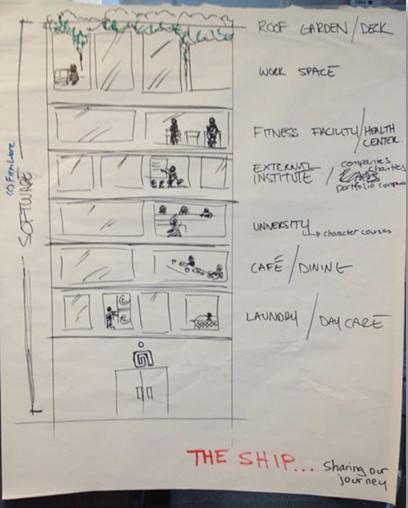 ROOF GARDEN/DECK
WORK SPACE
FITNESS FACILITY/HEALTH
CENTER.
EXTERNAL
INSTITUTE / companies
charities
portfolio compan
UNIVERSITY
↳ character courses
CAFÉ/DINING
LAUNDRY/DAYCARE
SOFTWARE
THE SHIP...
Sharing our
journey